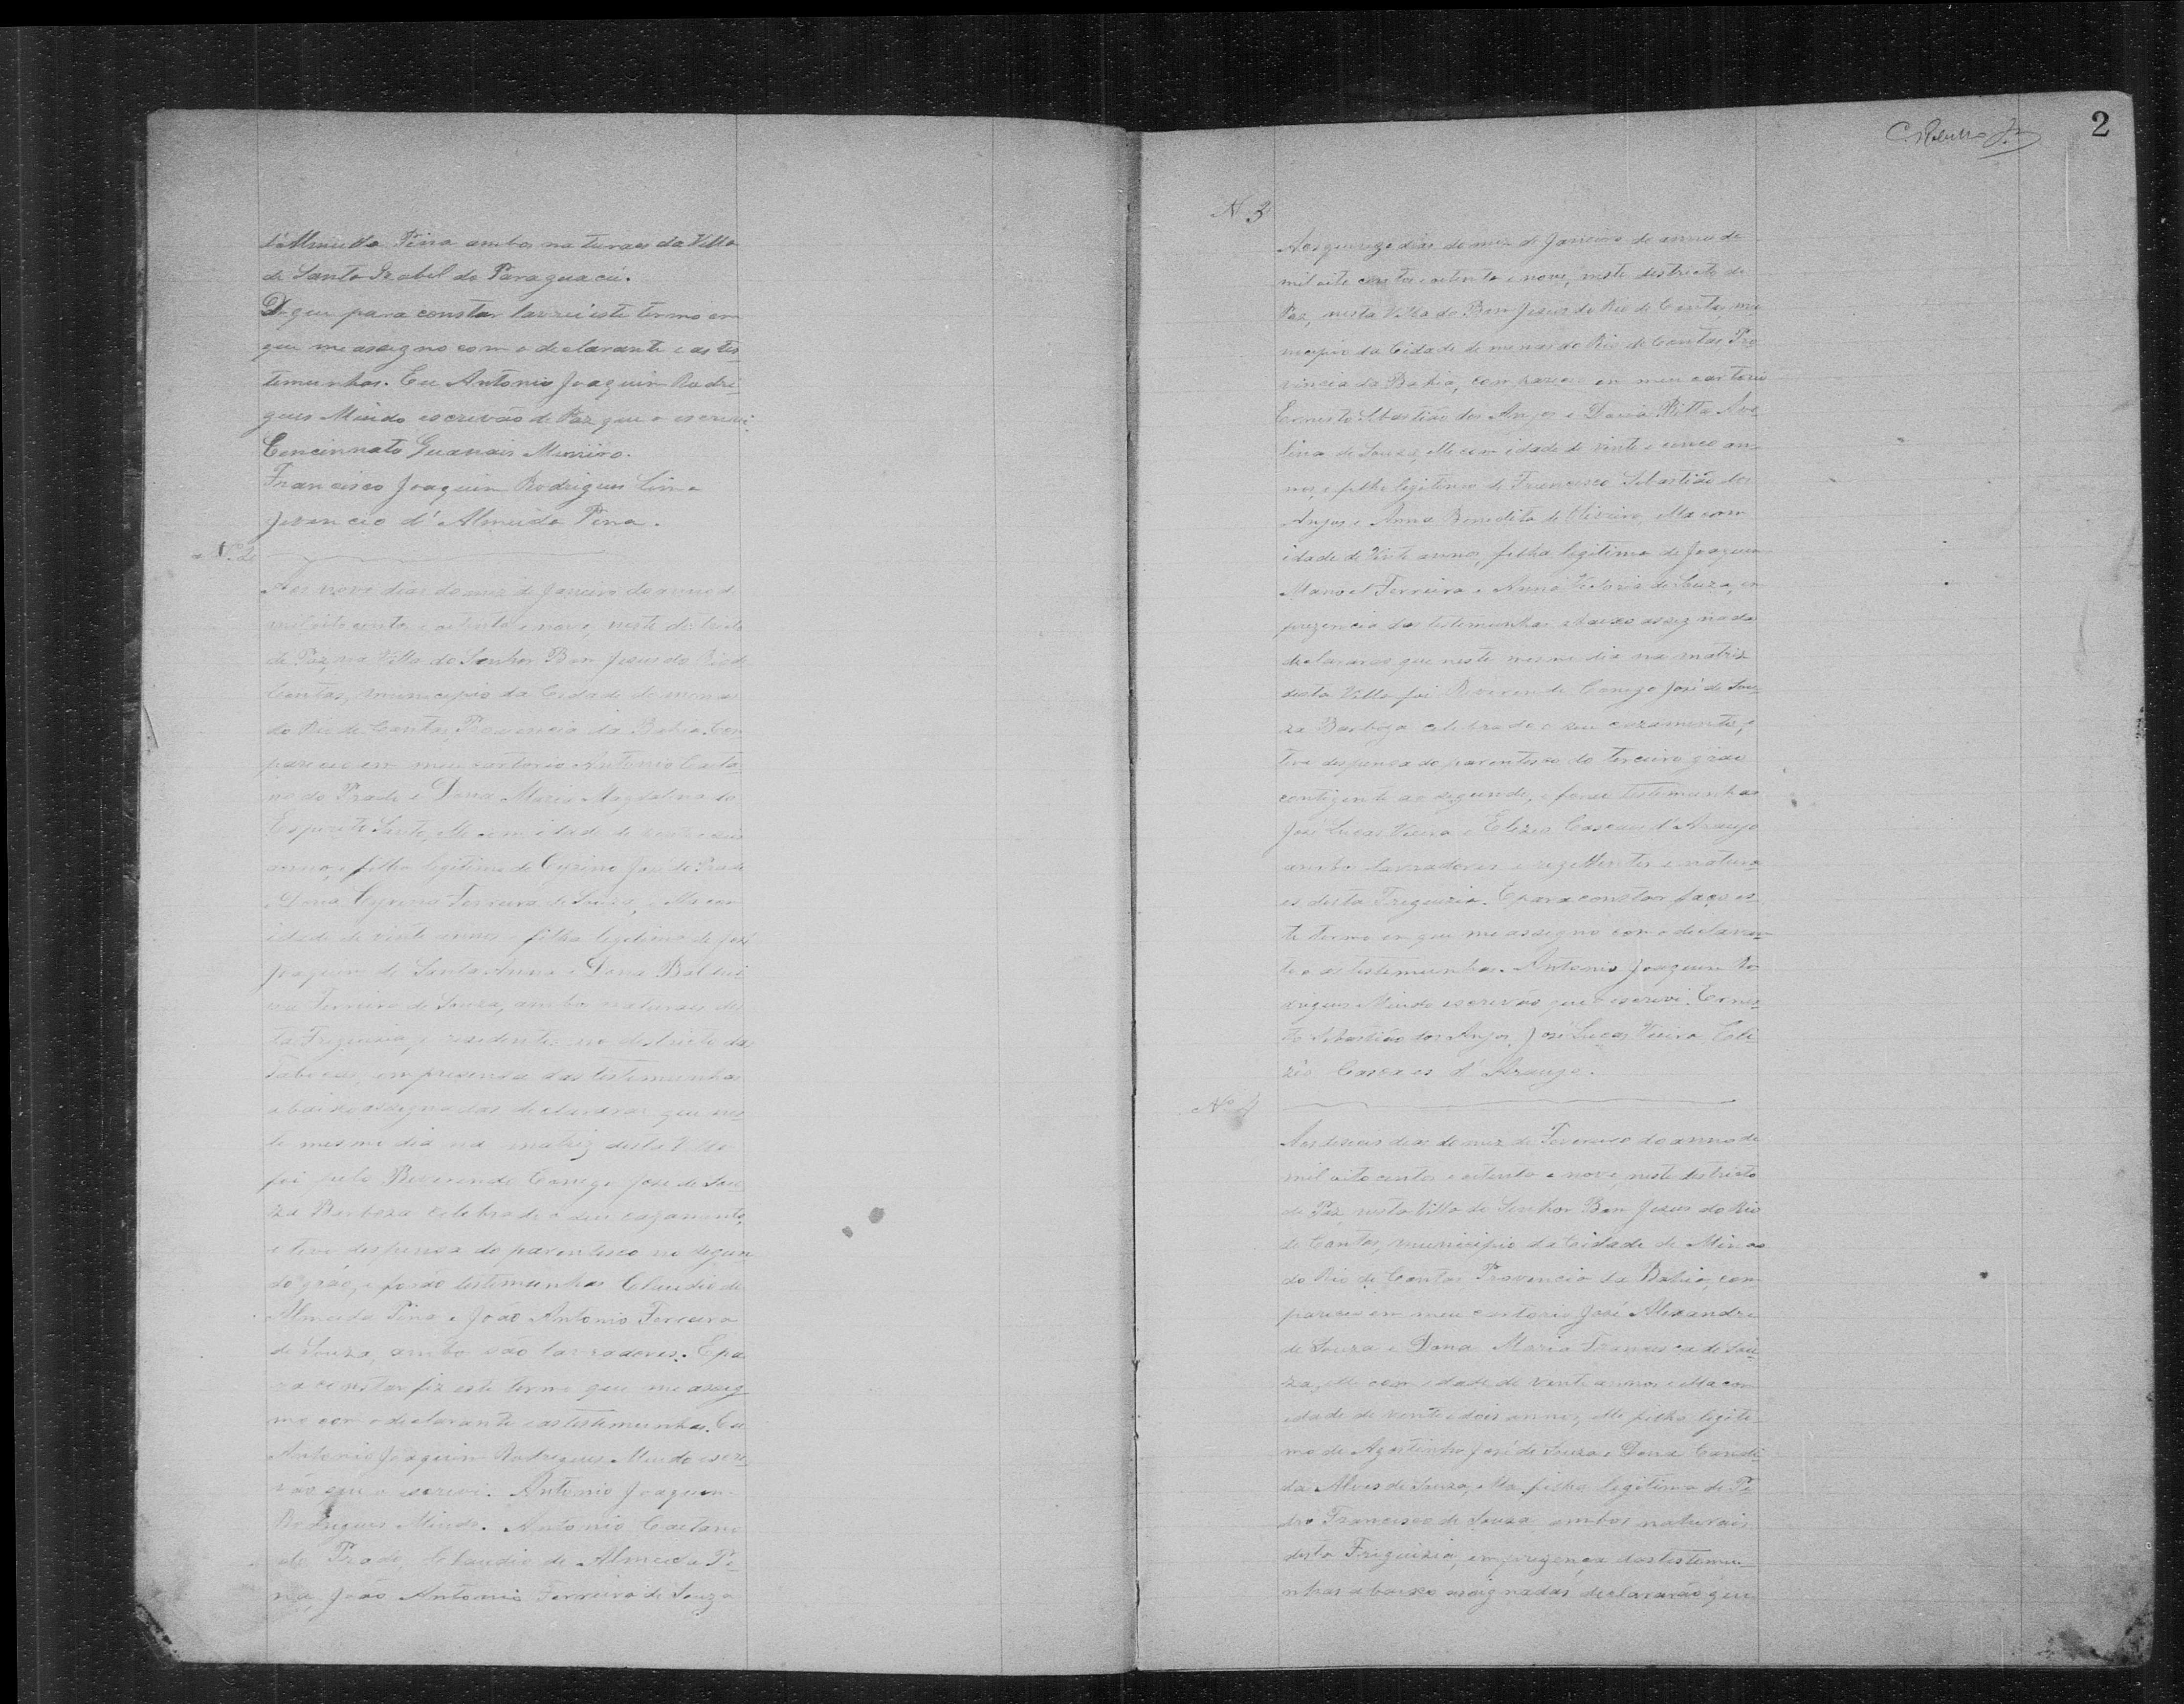 d'Almeida Pina ambos naturaes da Villa
de Santa Izabel do Paraguacú.
De que para constar lavrei este termo em
que me assigno com o declarante e as tes
temunhas. Eu Antonio Joaquim Rodri
gues Mindo escrivão de Paz que o escrevi.
Cencinnato Guanais Mineiro.
Francisco Joaquim Rodrigues Lima
Juvencio d'Almeida Pina.
N. 2
Aos nove dias do mez de Janeiro do anno de
mil oito centos e oitenta e nove, neste districto
de Paz, na Villa do Senhor Bom Jesus do Rio de
Contas, municipio da Cidade de minas
do Rio de Contas, Provincia da Bahia, Com
pareceo em meu cartorio Antonio Caeta
no do Prado e Dona Maria Magdalena do
Espirito Santo, elle com idade de
annos, e filho legitimo de Cyrino José do Prado
e Dona Cyrina Ferreira de Souza, e ella com
idade de vinte annos filha legitima de José
Joaquim de Santa Anna e Dona Balbui
na Ferreira de Souza, ambos naturaes des
ta Freguezia, e residentes no districto das
Tabocas, em presensa das testemunhas
abaixo assignadas declararão que nes
te mesmo dia na matriz desta Villa
foi pelo Reverendo Conego José de Sou
za Barboza celebrado o seu cazamento,
e teve despensa do parentesco no segun
do gráo, e forão testemunhas Claudio de
Almeida Pina e João Antonio Ferreira
de Souza, ambos são lavradores. E pa
ra constar fiz este termo que me assig
no com o declarante e as testemunhas. Eu
Antonio Joaquim Rodrigues Mindo escri
vão que o escrevi. Antonio Joaquim
Rodrigues Mindo. Antonio Caetano
do Prado, Claudio de Almeida Pi
na, João Antonio Ferreira de Souza
2
N 3
Aos quinze dias do mez de Janeiro do anno de
mil oito centos e oitenta e nove, neste destricto de
Paz, nesta Villa do Bom Jesus do Rio de Contas, mu
nicipio da Cidade de minas do Rio de Contas Pro
vincia da Bahia, compareceo em meu cartorio
Ernesto Sebastião dos Anjos e Dona Ritta Ave
lina de Souza, elle com idade de vinte e cinco an
nos, e filho legitimo de Francisco Sebastião dos
Anjos e Anna Benedita de Oliveira, ella com
idade de vinte annos, filha legitima de Joaquim
Manoel Ferreira e Anna Victoria de Souza, em
prezencia das testemunhas abaixo assignadas
declararão que neste mesmo dia na matriz
desta Villa foi Reverendo Conego José de Sou
za Barboza celebrado o seu cazamento, e
teve despensa do parentesco do terceiro gráo
contigente ao segundo, e forão testemunhas
José Lucas Vieira e Elizio Cascaes d'Araujo
ambos lavradores e rezidentes e natura
es desta Freguezia. E para constar faço es
te termo em que me assigno com o declaran
te e as testemunhas. Antonio Joaquim Ro
drigues Mindo escrivão que o escrevi. Ernes
to Sebastião dos Anjos, José Lucas Vieira, Eli
zio Cascaes d'Araujo.
No 4
Aos deseis dias do mez de Fevereiro do anno de
mil oito centos e oitenta e nove, neste destricto
de Paz, nesta Villa do Senhor Bom Jesus do Rio
de Contas, municipio da Cidade de Minas
do Rio de Contas Provincia da Bahia, com
pareceo em meu cartorio José Alexandre
de Souza e Dona Maria Francisca de Sou
za, elle com idade de vinte annos e ella com
idade de vinte e dois annos, elle filho legiti
mo de Agostinho José de Souza e Dona Candi
da Alves de Souza, ella filha legitima de Pe
dro Francisco de Souza ambos naturais
desta Freguizia, em prezença das testemu
nhas abaixo assignadas, declararão que